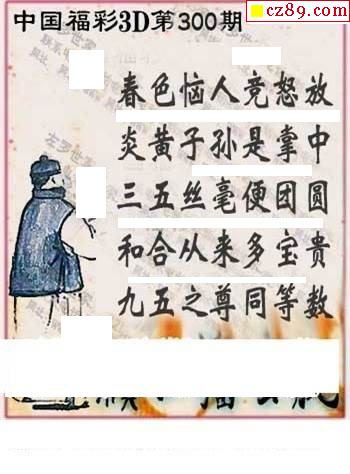 cz89.com
中国福彩3D第300期
春色恼人竞怒放
炎黄子孙是掌中
三五丝毫便团圆
和合从来多宝贵
九五之尊同等数